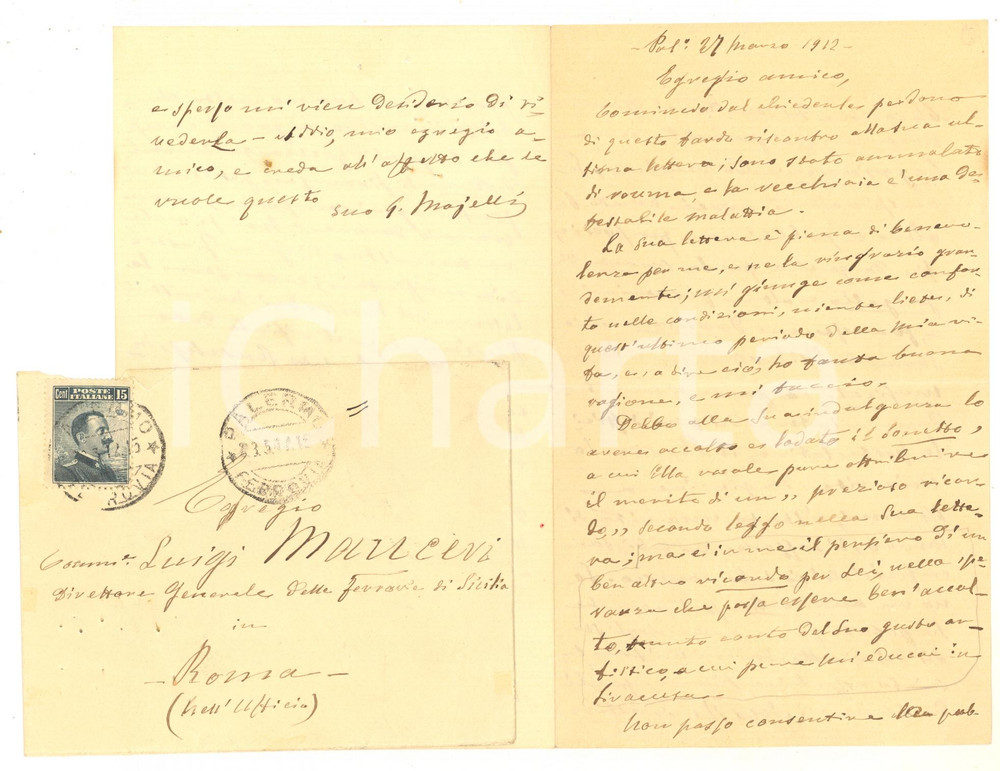 - Pal.º 27 Marzo 1912 -
Egregio amico,
Comincio dal chiederle perdono
di questo tardo riscontro alla sua ul-
tima lettera; sono stato ammalato
di reuma, e la vecchiaia è una de-
testabile malattia.
La Sua lettera è piena di benevo-
lenza per me, e ne la ringrazio gran-
demente; mi giunge come confor-
to nelle condizioni, niente liete, di
quest'ultimo periodo della mia vi-
ta, e, a dire ciò, ho tanta buona
ragione, e mi taccio.
Debbo alla Sua indulgenza lo
avere accolto e lodato il Sonetto,
a cui Ella vuole pure attribuire
il merito di un „ prezioso ricor-
do „ secondo leggo nella Sua lette-
ra; ma ci in me il pensiero di un
ben altro ricordo per Lei, nella spe-
ranza che possa essere ben'accol-
to, conto del Suo gusto ar-
tistico, a cui pure mi educai in
Siracusa.
Non posso consentire alla pub-
e spesso mi vien desiderio di ri-
vederla - Addio, mio egregio a-
mico, e creda all'affetto che le
vuole questo suo G. Majelli
POSTE
ITALIANE
Cent 15
PALERMO
FERROVIA
PALERMO
FERROVIA
Egregio
Comm.re Luigi Mancini
Direttore Generale delle Ferrovie di Sicilia
in
- Roma -
(Nell'Ufficio)
iCharta